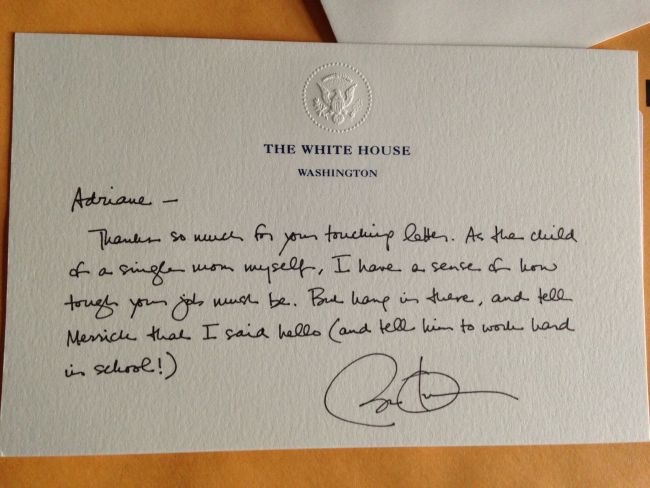 THE WHITE HOUSE
WASHINGTON
Adriane —
Thanks so much for your touching letter. As the child
of a single mom myself, I have a sense of how
tough your job must be. But hang in there, and tell
Merrick that I said hello (and tell him to work hard
in school!)